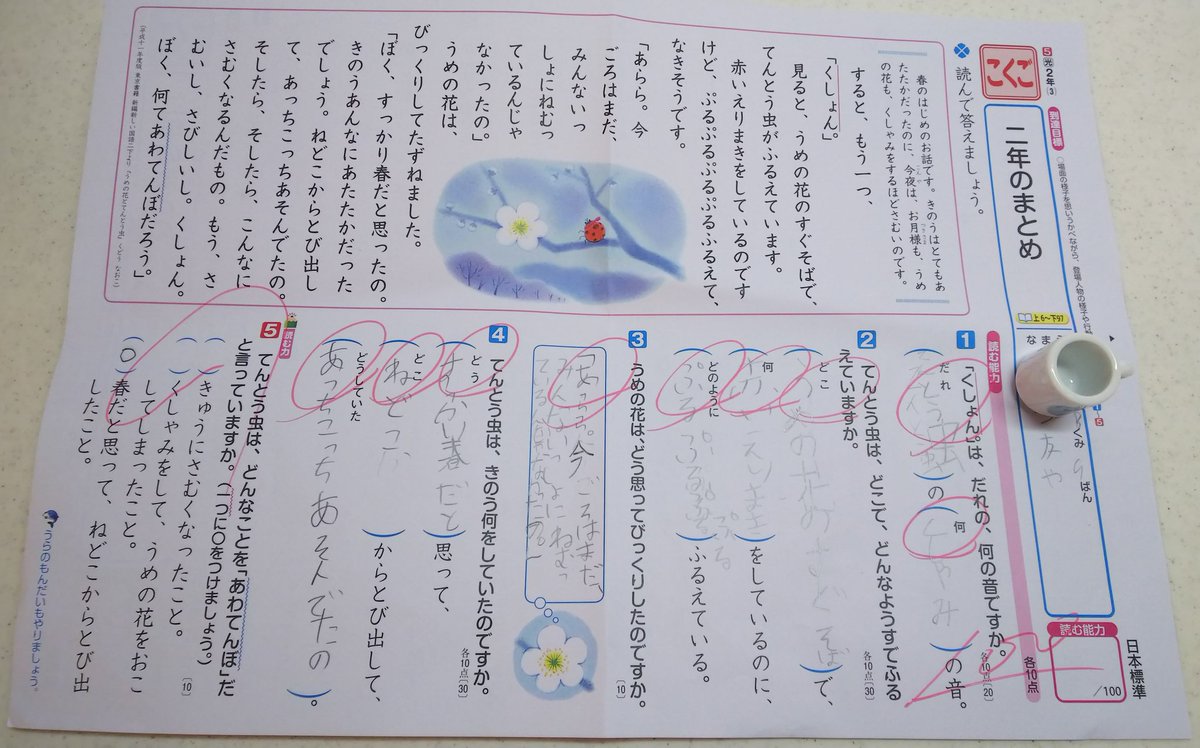 5 光 2年(3)
こくご
到達目標
○場面の様子を思いうかべながら、登場人物の様子や行
二年のまとめ
上6〜下97
なま
くみ
ばん
友や
読む能力
/100
日本標準
読んで答えましょう。
春のはじめのお話です。きのうはとてもあ
たたかだったのに、今夜は、お月様も、うめ
の花も、くしゃみをするほどさむいのです。
すると、もう一つ、
「くしょん。」
見ると、うめの花のすぐそばで、
てんとう虫がふるえています。
赤いえりまきをしているのです
けど、ぷるぷるぷるぷるふるえて、
なきそうです。
「あらら。今
ごろはまだ、
みんないっ
しょにねむっ
ているんじゃ
なかったの。」
うめの花は、
びっくりしてたずねました。
「ぼく、すっかり春だと思ったの。
きのうあんなにあたたかだった
でしょう。ねどこからとび出し
て、あっちこっちあそんでたの。
そしたら、そしたら、こんなに
さむくなるんだもの。もう、さ
むいし、さびしいし。くしょん。
ぼく、何てあわてんぼだろう。」
(平成十一年度版 東京書籍 新編新しい国語二下より「うめの花とてんとう虫」くどう なおこ)
読む能力
各10点
1 「くしょん。」は、だれの、何の音ですか。
各10点[20]
だれ
(てんとう虫)の
何
(くしゃみ)の音。
2 てんとう虫は、どこで、どんなようすでふる
えていますか。
各10点[30]
どこ
(うめの花のすぐそば)で、
何
(赤いえりまき)をしているのに、
どのように
(ぷるぷるぷるぷる)ふるえている。
3 うめの花は、どう思ってびっくりしたのですか。
[10]
「あらら。今ごろはまだ、
みんないっしょにねむっ
ているんじゃなかったの。」
4 てんとう虫は、きのう何をしていたのですか。
各10点[30]
どう
(すっかり春だと)思って、
どこ
(ねどこ)からとび出して、
どうしていた
(あっちこっちあそんでたの)。
読む力
5 てんとう虫は、どんなことを「あわてんぼ」だ
と言っていますか。(一つに○をつけましょう。)
[10]
( )きゅうにさむくなったこと。
( )くしゃみをして、うめの花をおこ
してしまったこと。
(○)春だと思って、ねどこからとび出
したこと。
うらのもんだいもやりましょう。